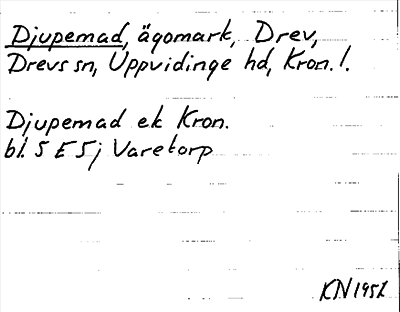 Djupemad, ägomark, Drev,
Drevs sn, Uppvidinge hd, Kron. l.
Djupemad ek Kron.
bl. 5 E 5j Varetorp
KN 1951